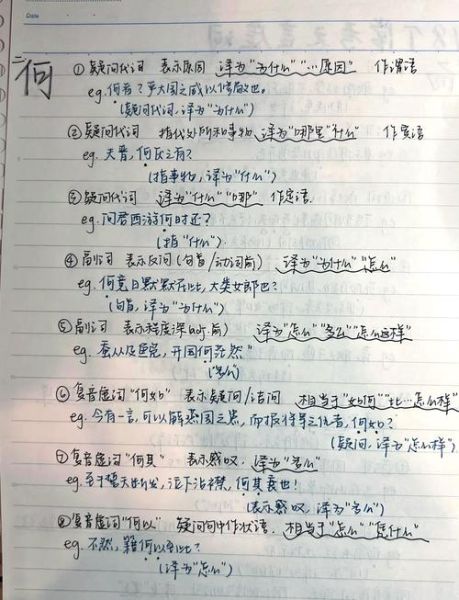 Date
二 何
① 疑问代词 表示原因 译为"为什么""…原因" 作谓语
eg. 何者?严大国之威以修敬也。
(疑问代词,译为"为什么")
② 疑问代词 指代处所和事物,译为"哪里""什么" 作宾语
eg. 夫晋,何厌之有?
(指事物,译为"什么")
③ 疑问代词 译为"什么""哪" 作定语.
eg. 问君西游何时还?
(指"什么")
④ 副词 表示反问(句首/动词前) 译为"为什么""怎么"
eg. 何竟日默默在此,大类女郎也?
(句首,译为"为什么")
⑤ 副词 表示程度深(adj.前) 译为"怎么""多么""怎么这样"
eg. 蚕丛及鱼凫,开国何茫然"
("多么")
⑥ 复音虚词"何如" 表示疑问/诘问 相当于"如何""比…怎么样"
eg. 今有一言,可以解燕国之患,而报将军之仇者,何如?
(疑问,译为"怎么样")
⑦ 复音虚词"何其" 表示感叹,译为"多么"
eg. 至于誓天断发,泣下沾襟,何其衰也!
(表示感叹,译为"多么")
⑧ 复音虚词"何以" 疑问句中作状语. 相当于"怎么""凭什么"
eg. 不然,籍何以至此?
(译为"怎么")